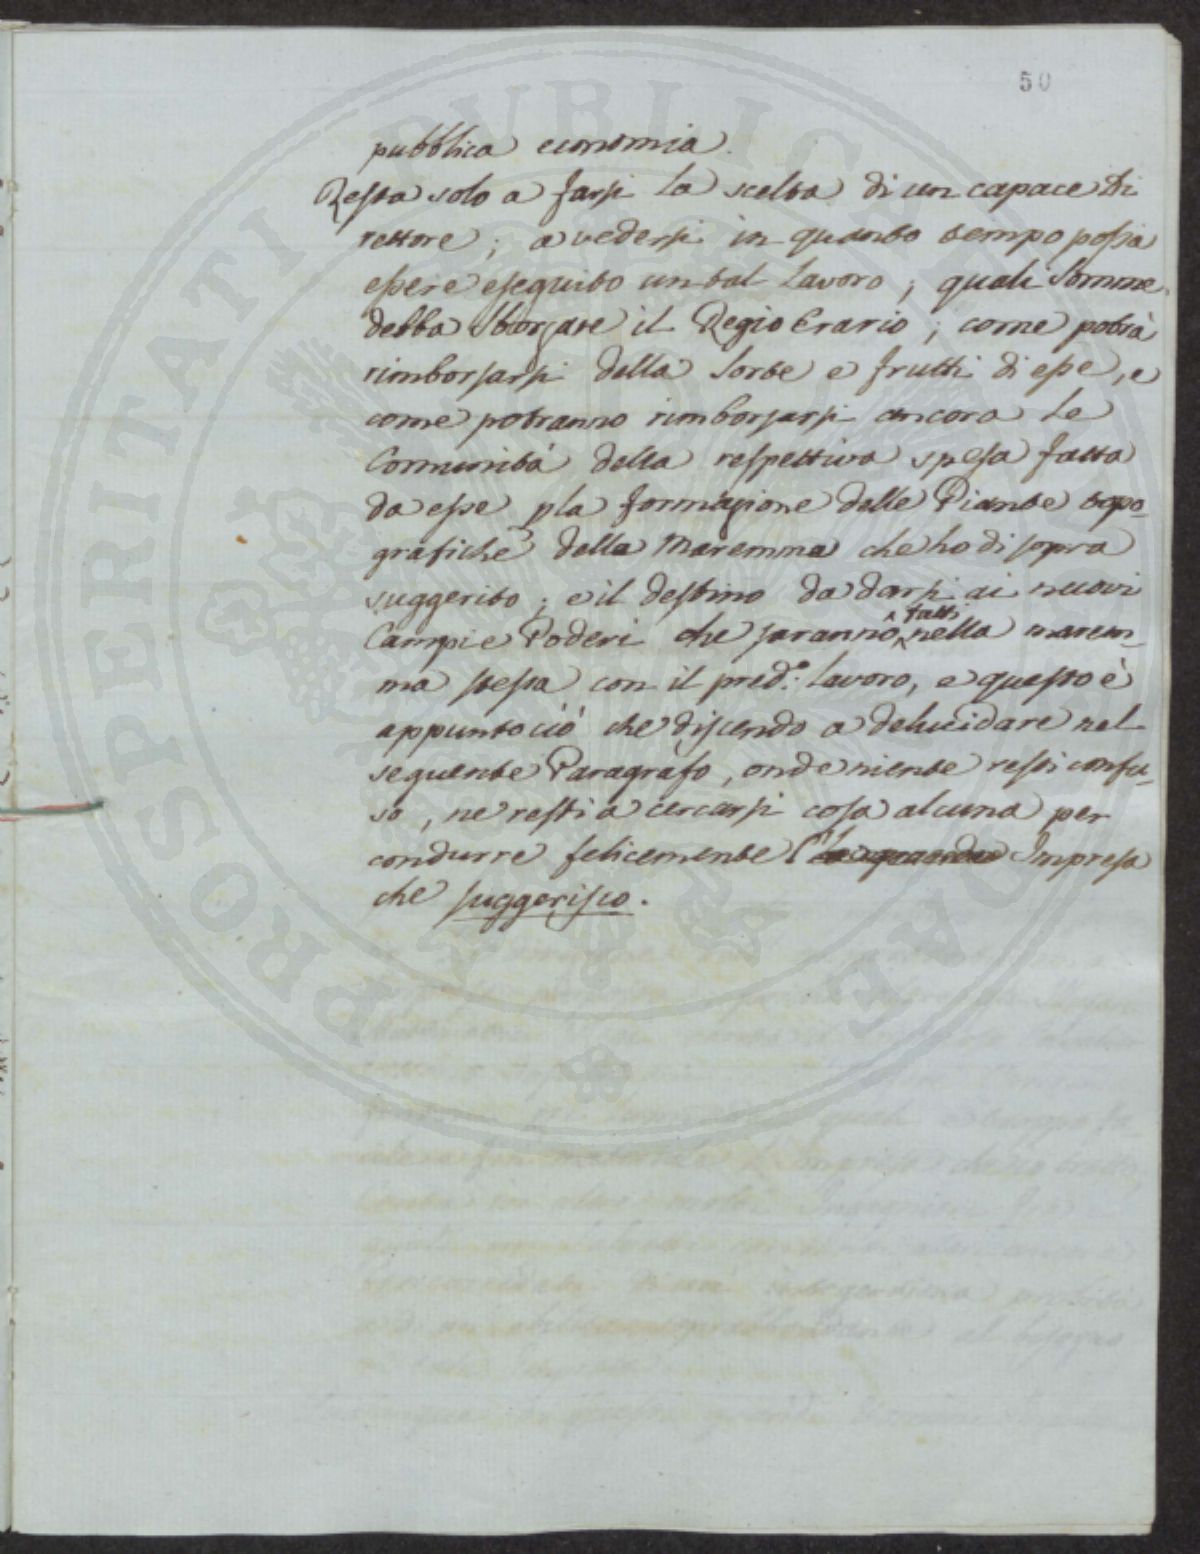 50
pubblica economia.
Resta solo a farsi la scelta di un capace Di
rettore; a vedersi in quanto tempo possa
essere eseguito un tal Lavoro; quali Somme
debba Sborsare il Regio Erario; come potrà
rimborsarsi della Sorte e frutti di esse, e
come potranno rimborsarsi ancora le
Comunità della respettiva spesa fatta
da esse p la formazione delle Piante topo-
grafiche della Maremma che ho di sopra
suggerito; e il destino da darsi ai nuovi
fatti
Campi e Poderi che saranno nella marem-
ma stessa con il pred.o Lavoro, e questo è
appunto ciò che discendo a delucidare nel
seguente Paragrafo, onde niente resti confu-
so, ne resti a cercarsi cosa alcuna per
condurre felicemente l' Impresa
che suggerisco.
PROSPERITATI PUBLICAE AUGENDAE